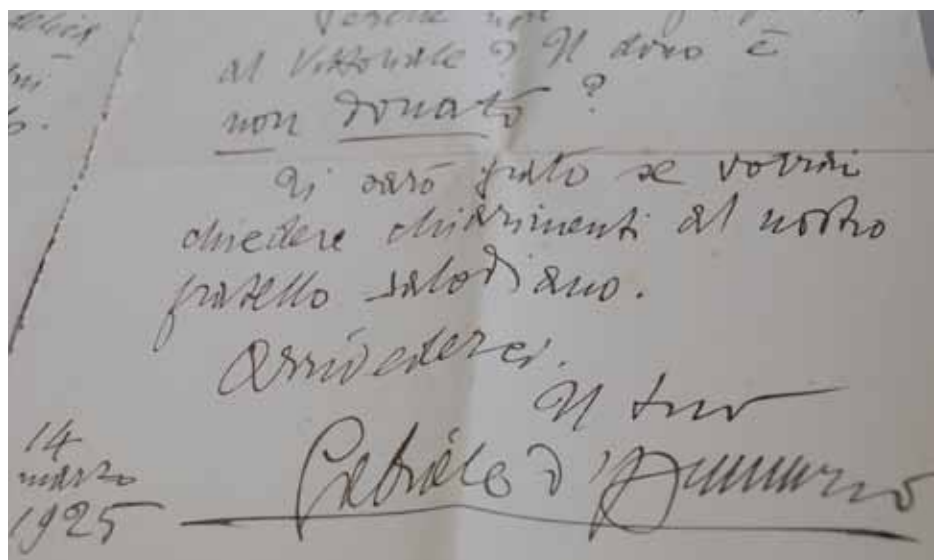 perché non
al Vittoriale? Il dono è
non donato?
Ti sarò grato se vorrai
chiedere chiarimenti al nostro
fratello salodiano.
Arrivederci.
Il tuo
Gabriele d'Annunzio
14
marzo
1925